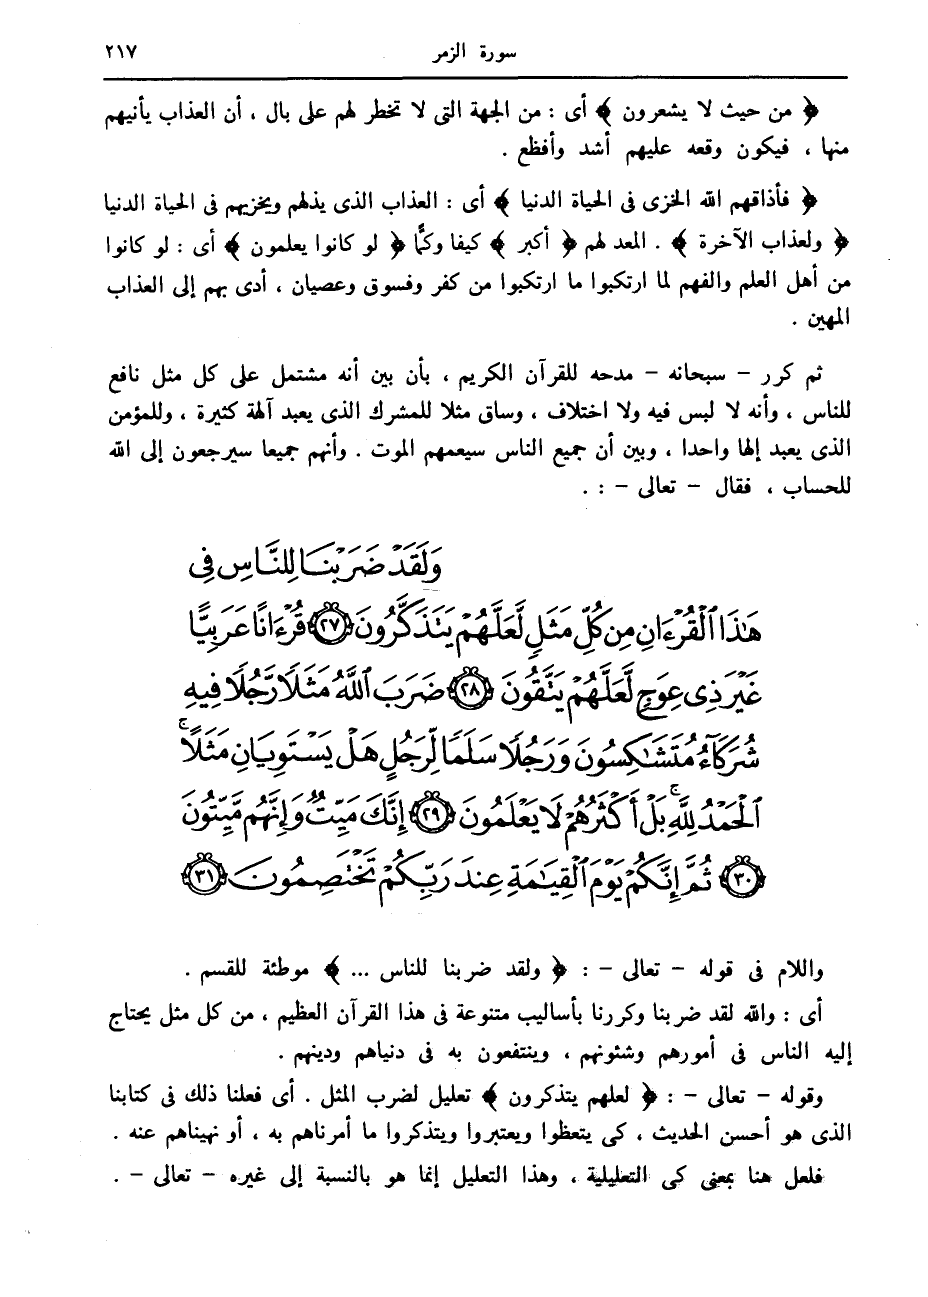 سورة الزمر ٢١٧
﴿ من حيث لا يشعرون ﴾ أى : من الجهة التى لا تخطر لهم على بال ، أن العذاب يأتيهم
منها ، فيكون وقعه عليهم أشد وأفظع .
﴿ فأذاقهم الله الخزى فى الحياة الدنيا ﴾ أى : العذاب الذى يذلهم ويخزيهم فى الحياة الدنيا
﴿ ولعذاب الآخرة ﴾ . المعد لهم ﴿ أكبر ﴾ كيفا وكمًّا ﴿ لو كانوا يعلمون ﴾ أى : لو كانوا
من أهل العلم والفهم لما ارتكبوا ما ارتكبوا من كفر وفسوق وعصيان ، أدى بهم إلى العذاب
المهين .
ثم كرر – سبحانه – مدحه للقرآن الكريم ، بأن بين أنه مشتمل على كل مثل نافع
للناس ، وأنه لا لبس فيه ولا اختلاف ، وساق مثلا للمشرك الذى يعبد آلهة كثيرة ، وللمؤمن
الذى يعبد إلها واحدا ، وبين أن جميع الناس سيعمهم الموت . وأنهم جميعا سيرجعون إلى الله
للحساب ، فقال – تعالى – : .
وَلَقَدْ ضَرَبْنَا لِلنَّاسِ فِى
هَٰذَا ٱلْقُرْءَانِ مِن كُلِّ مَثَلٍ لَّعَلَّهُمْ يَتَذَكَّرُونَ ٢٧ قُرْءَانًا عَرَبِيًّا
غَيْرَ ذِى عِوَجٍ لَّعَلَّهُمْ يَتَّقُونَ ٢٨ ضَرَبَ ٱللَّهُ مَثَلًا رَّجُلًا فِيهِ
شُرَكَآءُ مُتَشَٰكِسُونَ وَرَجُلًا سَلَمًا لِّرَجُلٍ هَلْ يَسْتَوِيَانِ مَثَلًا ۚ
ٱلْحَمْدُ لِلَّهِ ۚ بَلْ أَكْثَرُهُمْ لَا يَعْلَمُونَ ٢٩ إِنَّكَ مَيِّتٌ وَإِنَّهُم مَّيِّتُونَ
٣٠ ثُمَّ إِنَّكُمْ يَوْمَ ٱلْقِيَٰمَةِ عِندَ رَبِّكُمْ تَخْتَصِمُونَ ٣١
واللام فى قوله – تعالى – : ﴿ ولقد ضربنا للناس ... ﴾ موطئة للقسم .
أى : والله لقد ضربنا وكررنا بأساليب متنوعة فى هذا القرآن العظيم ، من كل مثل يحتاج
إليه الناس فى أمورهم وشئونهم ، وينتفعون به فى دنياهم ودينهم .
وقوله – تعالى – : ﴿ لعلهم يتذكرون ﴾ تعليل لضرب المثل . أى فعلنا ذلك فى كتابنا
الذى هو أحسن الحديث ، كى يتعظوا ويعتبروا ويتذكروا ما أمرناهم به ، أو نهيناهم عنه .
فلعل هنا بمعنى كى التعليلية ، وهذا التعليل إنما هو بالنسبة إلى غيره – تعالى – .